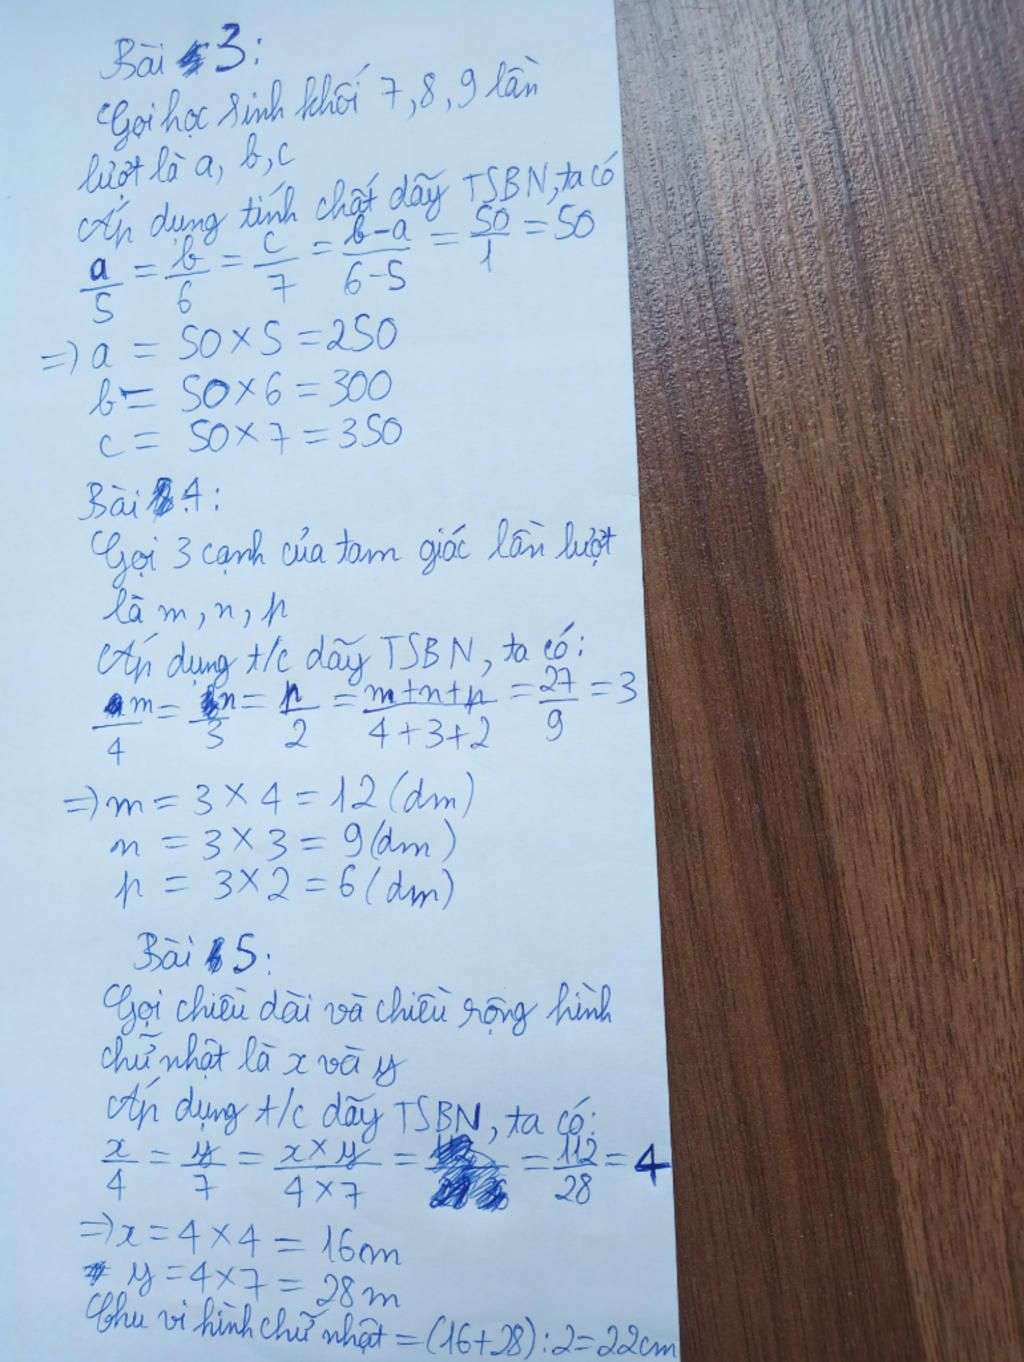 Bài 3:
Gọi học sinh khối 7, 8, 9 lần
lượt là a, b, c
Áp dụng tính chất dãy TSBN, ta có
a/5 = b/6 = c/7 = b-a/6-5 = 50/1 = 50
=> a = 50 × 5 = 250
b = 50 × 6 = 300
c = 50 × 7 = 350
Bài 4:
Gọi 3 cạnh của tam giác lần lượt
là m, n, p
Áp dụng t/c dãy TSBN, ta có:
m/4 = n/3 = p/2 = m+n+p/4+3+2 = 27/9 = 3
=> m = 3 × 4 = 12 (dm)
n = 3 × 3 = 9 (dm)
p = 3 × 2 = 6 (dm)
Bài 5:
Gọi chiều dài và chiều rộng hình
chữ nhật là x và y
Áp dụng t/c dãy TSBN, ta có:
x/4 = y/7 = x×y/4×7 = = 112/28 = 4
=> x = 4 × 4 = 16m
y = 4 × 7 = 28m
Chu vi hình chữ nhật = (16+28) : 2 = 22cm